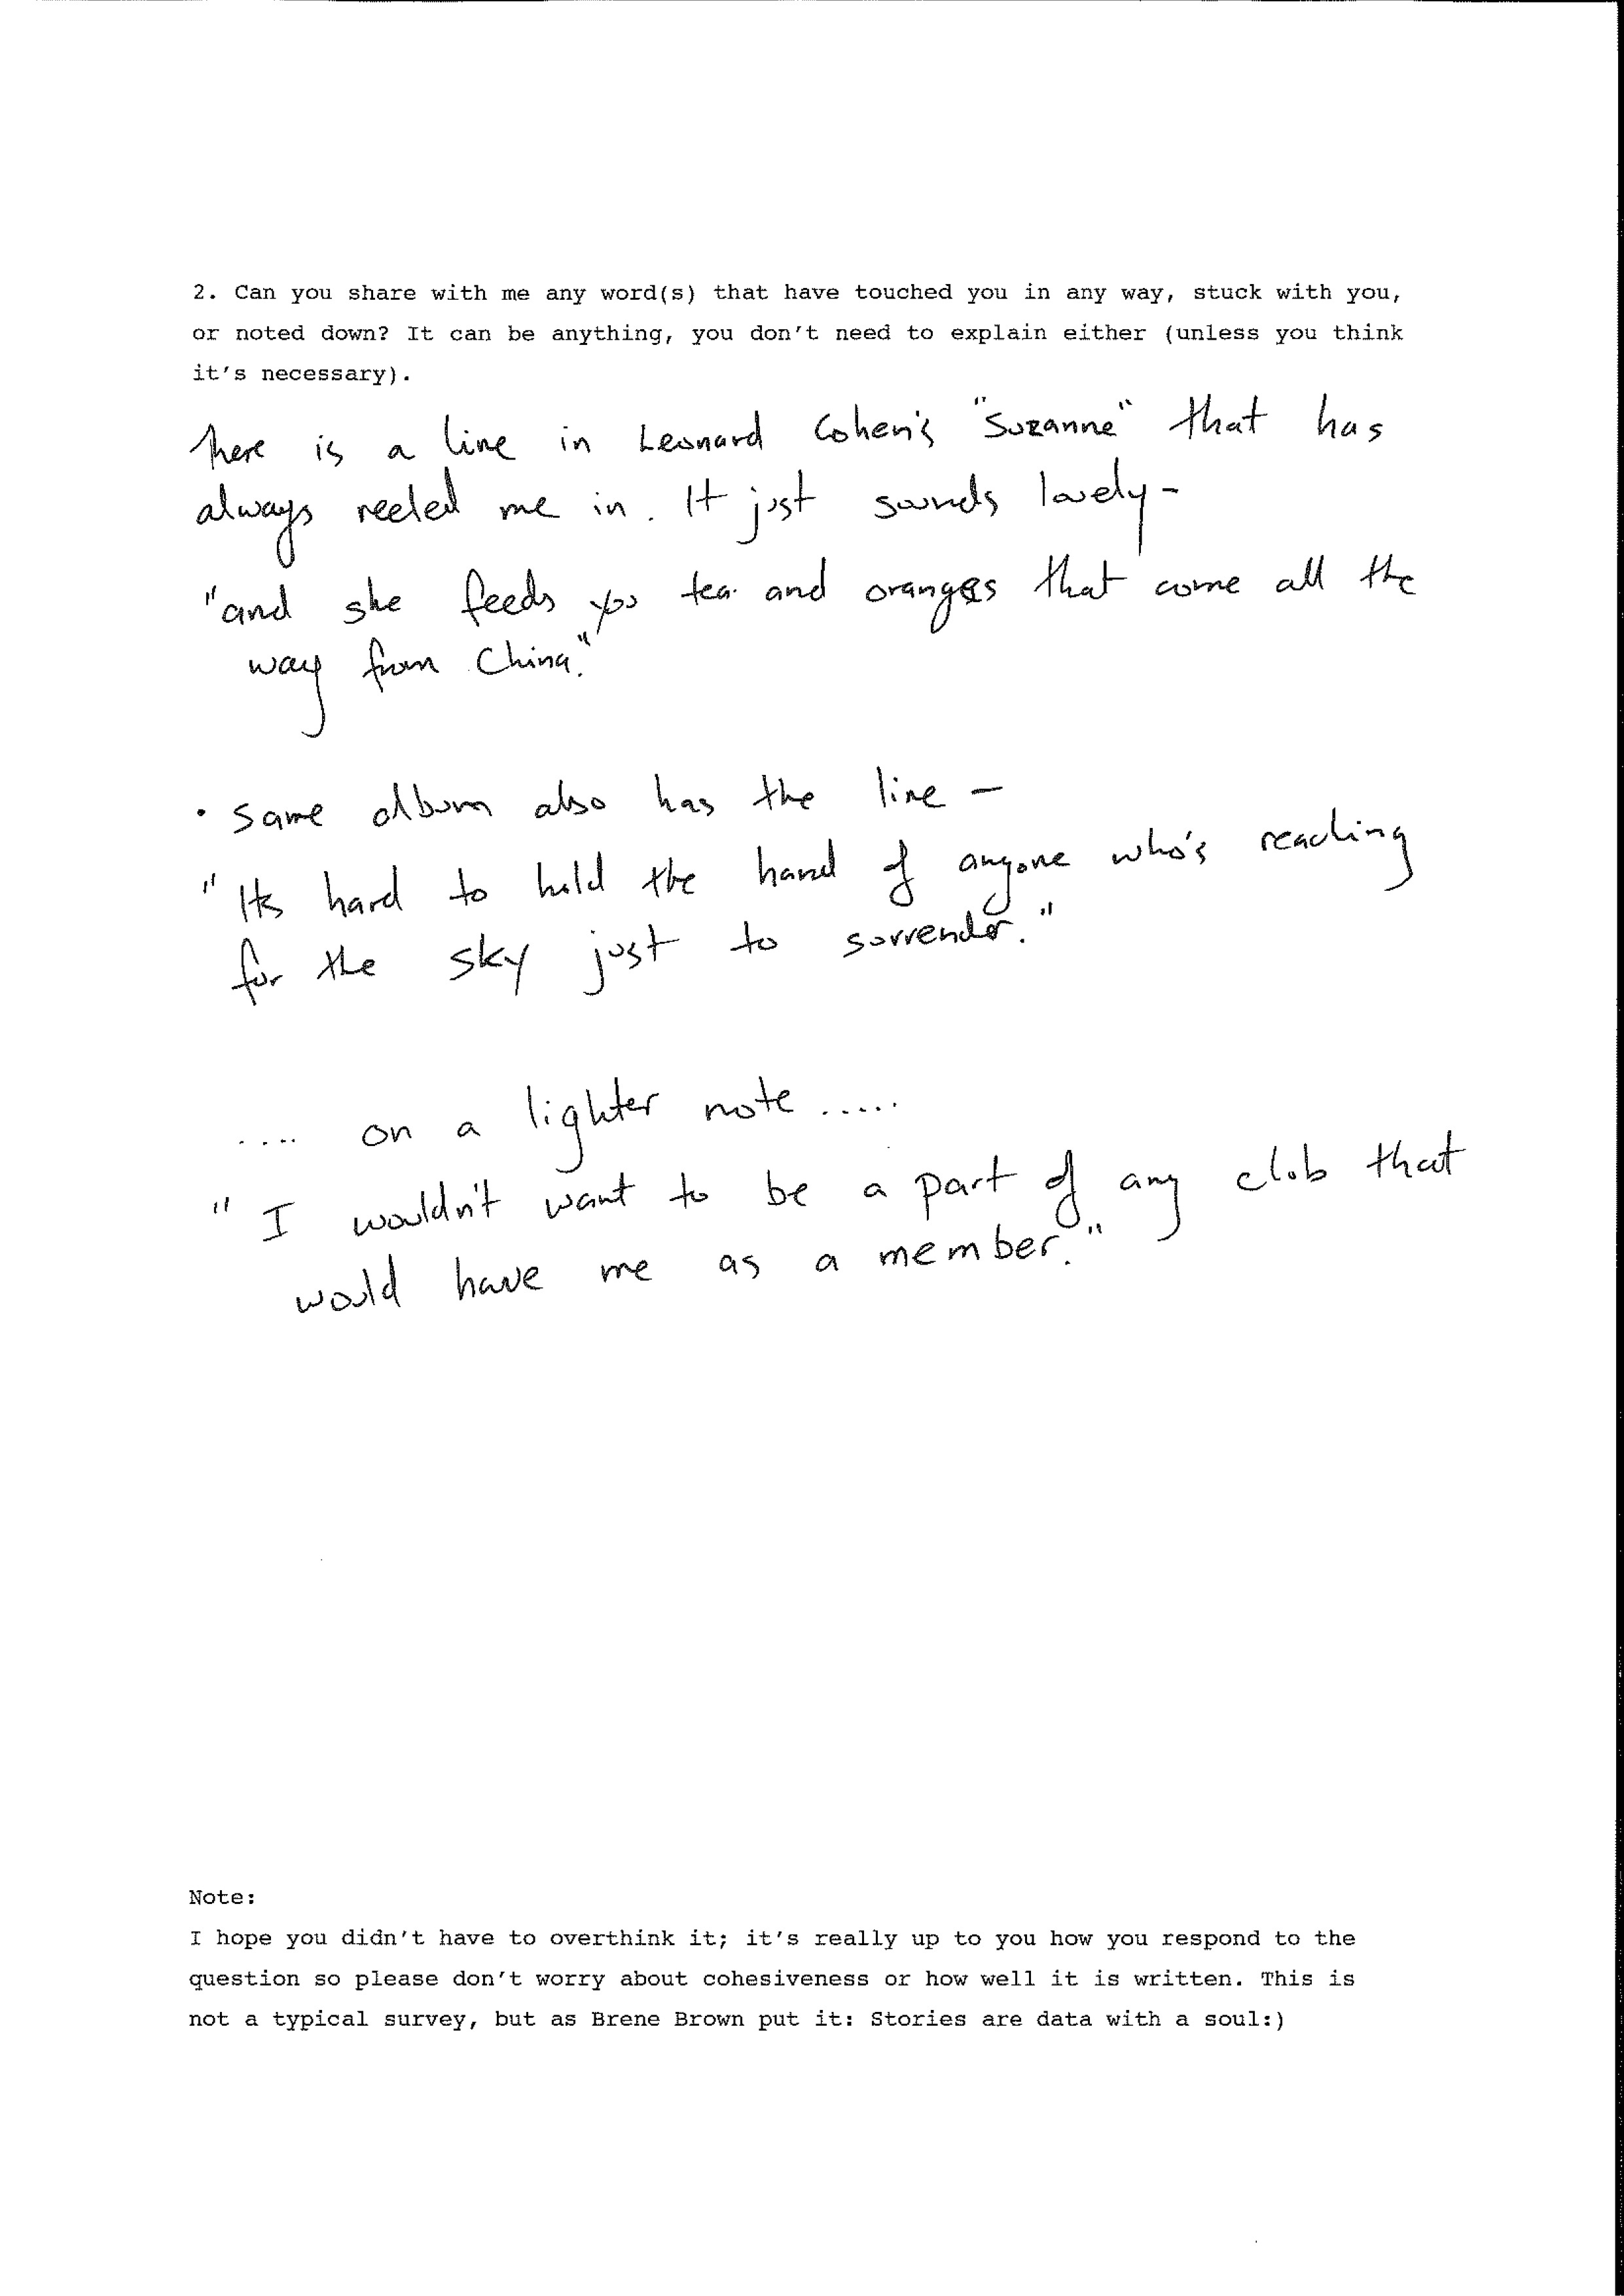 2. Can you share with me any word(s) that have touched you in any way, stuck with you,
or noted down? It can be anything, you don't need to explain either (unless you think
it's necessary).
There is a line in Leonard Cohen's "Suzanne" that has
always reeled me in. It just sounds lovely-
"and she feeds you tea and oranges that come all the
way from China."
• Same album also has the line —
"Its hard to hold the hand of anyone who's reaching
for the sky just to surrender."
.... on a lighter note .....
"I wouldn't want to be a part of any club that
would have me as a member."
Note:
I hope you didn't have to overthink it; it's really up to you how you respond to the
question so please don't worry about cohesiveness or how well it is written. This is
not a typical survey, but as Brene Brown put it: Stories are data with a soul:)